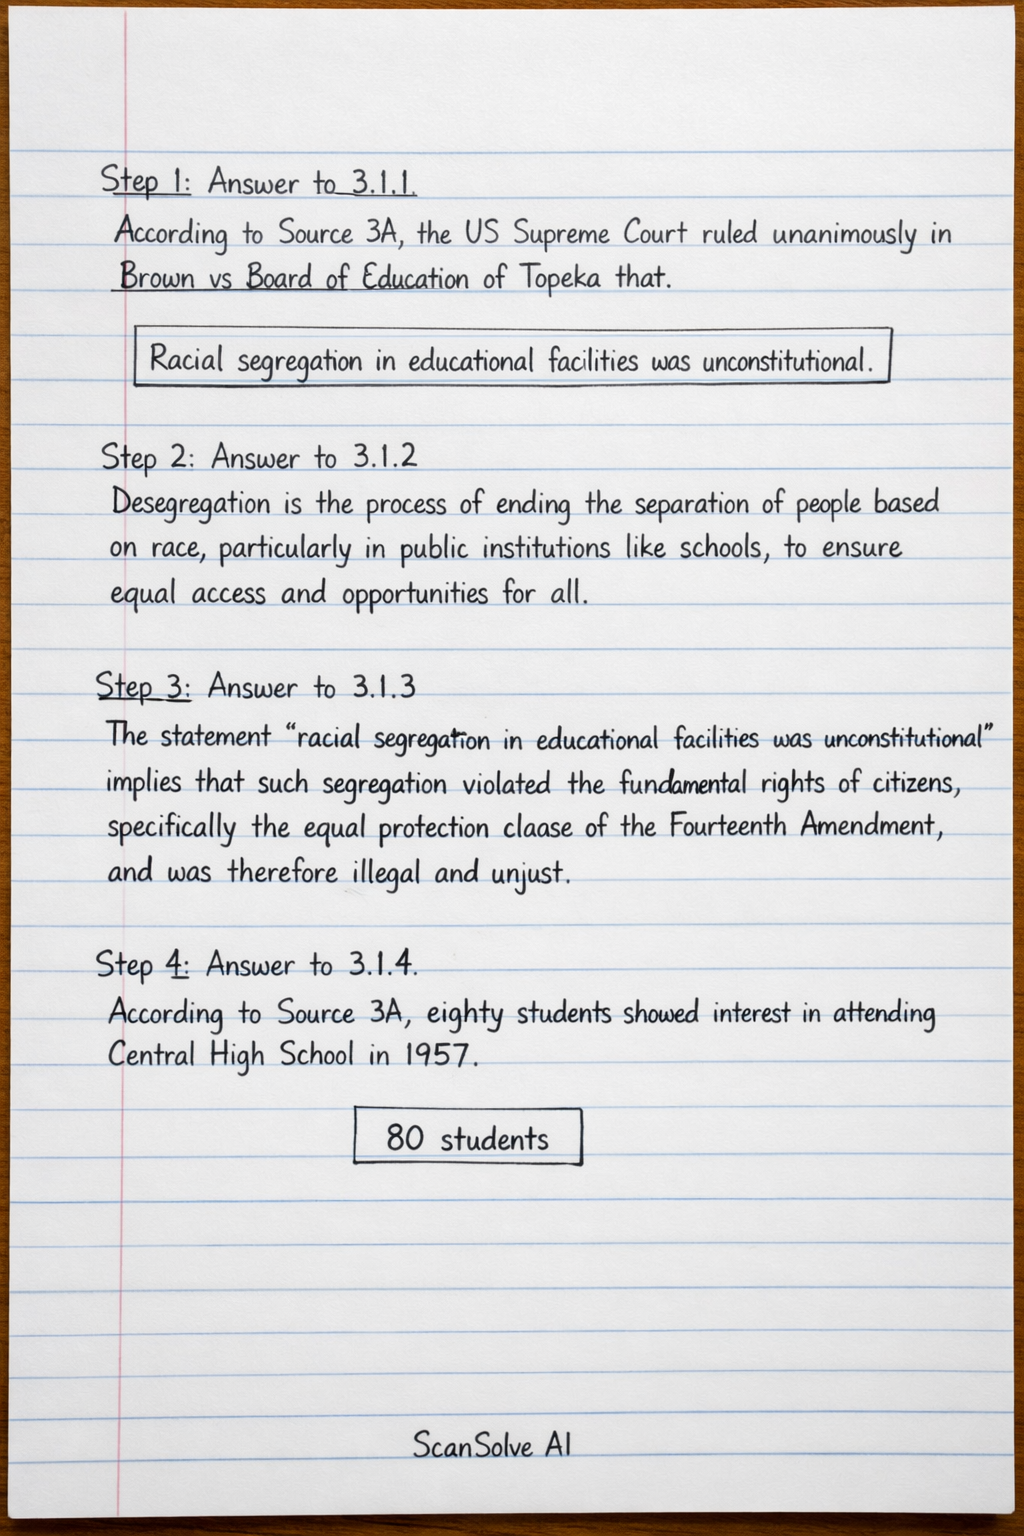 Step 1: Answer to 3.1.1.
According to Source 3A, the US Supreme Court ruled unanimously in
Brown vs Board of Education of Topeka that.
Racial segregation in educational facilities was unconstitutional.
Step 2: Answer to 3.1.2
Desegregation is the process of ending the separation of people based
on race, particularly in public institutions like schools, to ensure
equal access and opportunities for all.
Step 3: Answer to 3.1.3
The statement “racial segregation in educational facilities was unconstitutional”
implies that such segregation violated the fundamental rights of citizens,
specifically the equal protection claase of the Fourteenth Amendment,
and was therefore illegal and unjust.
Step 4: Answer to 3.1.4.
According to Source 3A, eighty students showed interest in attending
Central High School in 1957.
80 students
ScanSolve AI